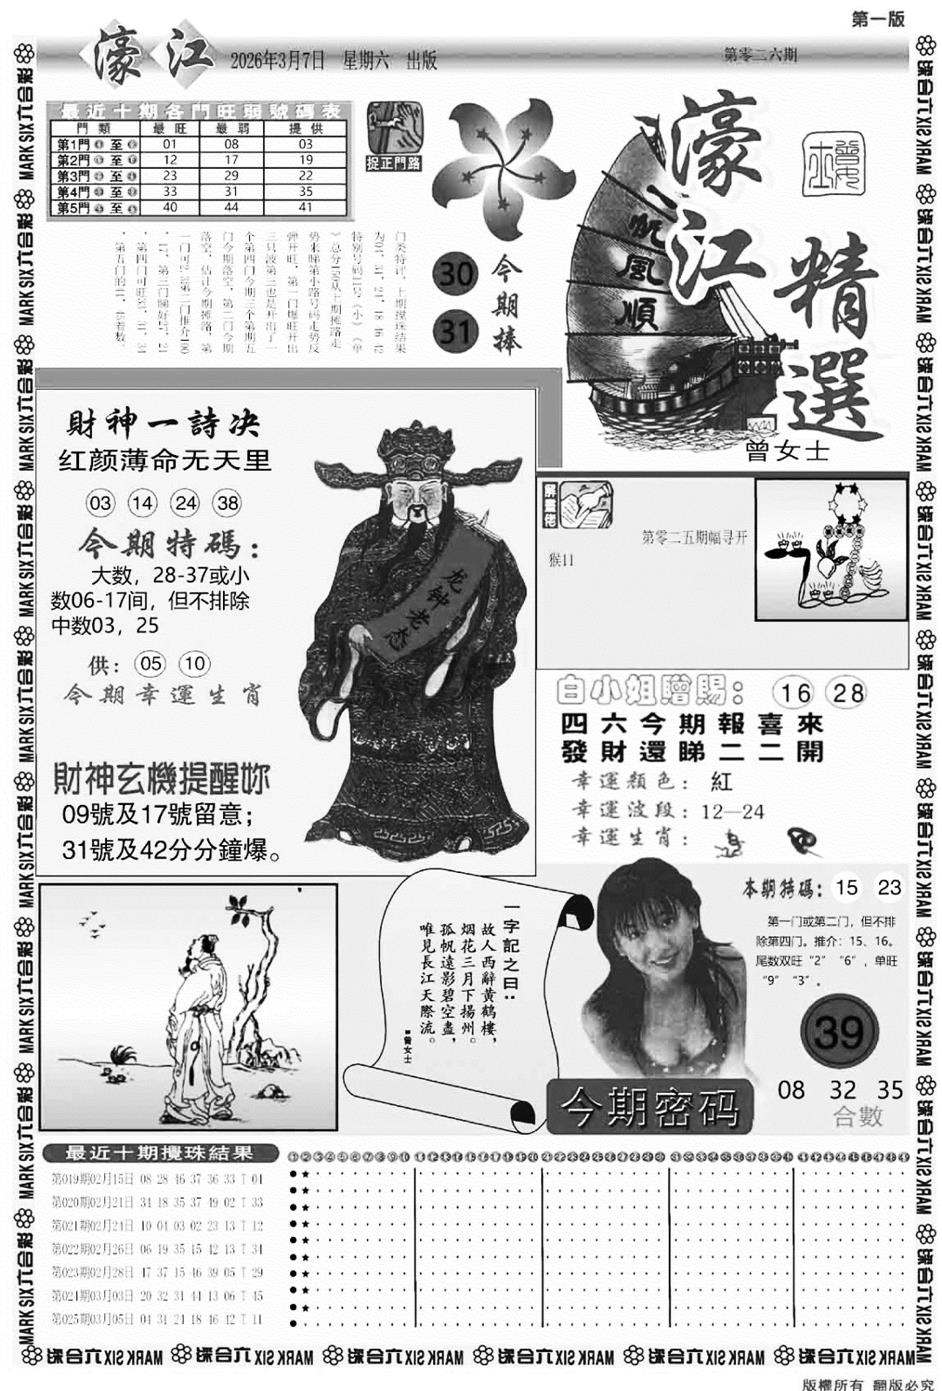 第一版
濠江 2026年3月7日 星期六 出版 第零二六期
最近十期各門旺弱號碼表
門類 最旺 最弱 提供
第1門 至 01 08 03
第2門 至 12 17 19
第3門 至 23 29 22
第4門 至 33 31 35
第5門 至 40 44 41
捉正門路
今期捧
30
31
一帆風順
濠江
精選
曾女士
財神一詩决
红颜薄命无天里
03 14 24 38
今期特碼：
大数，28-37或小
数06-17间，但不排除
中数03，25
供：05 10
今期幸運生肖
財神玄機提醒妳
09號及17號留意；
31號及42分分鐘爆。
龙钟老态
第零二五期幅寻开
猴11
白小姐贈賜：16 28
四六今期報喜來
發財還睇二二開
幸運顏色：紅
幸運波段：12—24
幸運生肖：
一字記之曰：
故人西辭黄鶴樓，
烟花三月下揚州。
孤帆遠影碧空盡，
唯見長江天際流。
曾女士
本期特碼：15 23
第一门或第二门，但不排
除第四门。推介：15、16。
尾数双旺“2”“6”，单旺
“9”“3”。
39
08 32 35
合數
今期密码
最近十期攪珠結果
第019期02月15日 08 28 46 37 36 33 T 04
第020期02月21日 34 18 35 37 49 02 T 33
第021期02月24日 10 04 03 02 23 13 T 12
第022期02月26日 06 19 35 15 42 13 T 34
第023期02月28日 47 37 15 46 39 05 T 29
第024期03月03日 20 32 31 44 13 06 T 45
第025期03月05日 04 31 24 18 16 42 T 11
MARK SIX六合彩
版權所有 翻版必究